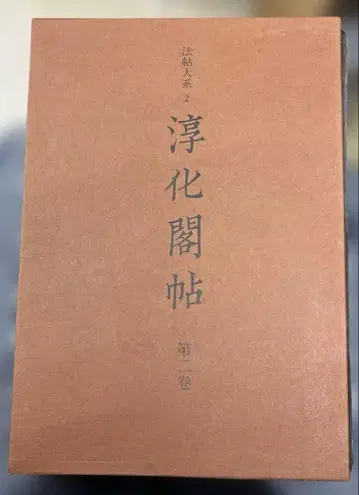 法帖大系 2
淳化閣帖
第二卷